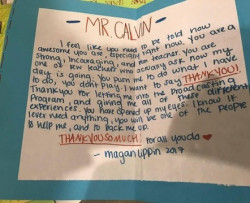 - MR. CALVIN -
I feel like you need to be told how
awesome you are, especially right now. You are a
strong, incouraging, and fun teacher. You are
one of few teachers who actually ask how my
day is going. You push me to do what I have
to do, you don't play. I want to say THANKYOU!
Thankyou for letting me into the broadcasting
Program, and giving me all of these different
experiences. You have opened up my eyes. I know if I
ever need anything, you will be one of the people
to help me, and to back me up.
THANKYOU SO MUCH for all you do ♥
- magan uppin 2017